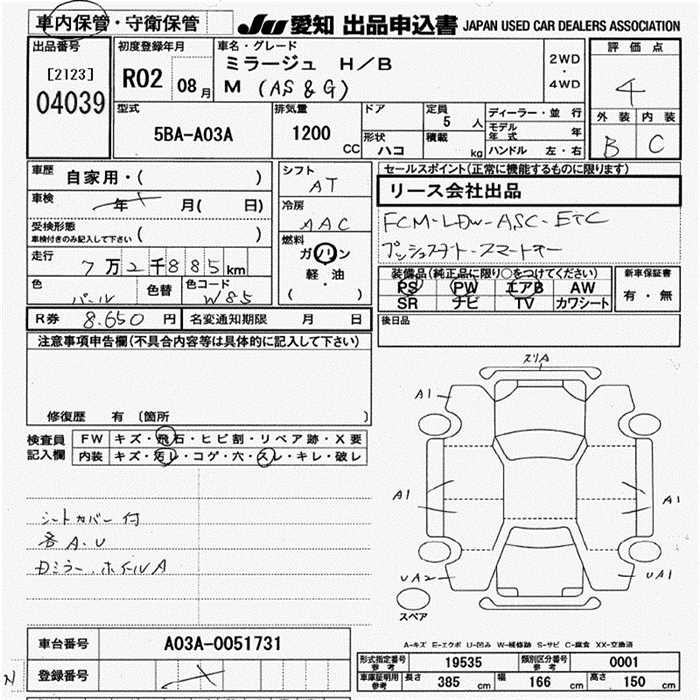 車内保管・守衛保管 JU 愛知 出品申込書 JAPAN USED CAR DEALERS ASSOCIATION
出品番号
[2123]
04039
初度登録年月
R02 08月
車名・グレード
ミラージュ H/B
M (AS&G)
2WD
・
4WD
評価点
4
外装 内装
B C
型式
5BA-A03A
排気量
1200 CC
ドア
形状 ハコ
定員
5 人
積載 kg
ディーラー・並行
モデル年式 年
ハンドル 左・右
車歴 自家用・( )
車検 年 月( 日)
受検形態
車検付きのみ記入して下さい ( )
走行 7万2千885km
色 パール 色替 色コード W85
シフト
AT
冷房
AAC
燃料
ガソリン
軽・油
( )
セールスポイント(正常に機能するものに限ります)
リース会社出品
FCM-LDW-ASC-ETC
プッシュスタート-スマートキー
装備品(純正品に限り○をつけてください)
PS PW エアB AW
SR ナビ TV カワシート
新車保証書
有・無
R券 8.650円 名変通知期限 月 日
後日品
注意事項申告欄(不具合内容等は具体的に記入して下さい)
修復歴 有 [箇所 ]
検査員記入欄
FW キズ・飛石・ヒビ割・リペア跡・X要
内装 キズ・汚レ・コゲ・穴・スレ・キレ・破レ
シートカバー付
各A.U
ミラー.ホイルA
スリA
A1
A1
A1
UA2
UA1
スペア
A-キズ E-エクボ U-凹み W-補修跡 S-サビ C-腐食 XX-交換済
車台番号 A03A-0051731
登録番号
N
形式指定番号参考 19535 類別区分番号参考 0001
車庫証明用参考 長さ 385 cm 幅 166 cm 高さ 150 cm